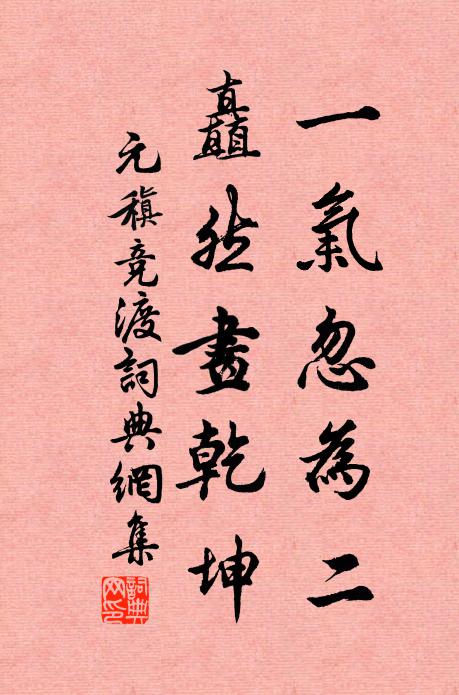 一氣忽為二
矗然畫乾坤
元稹竞渡詞典網集
詞典网印